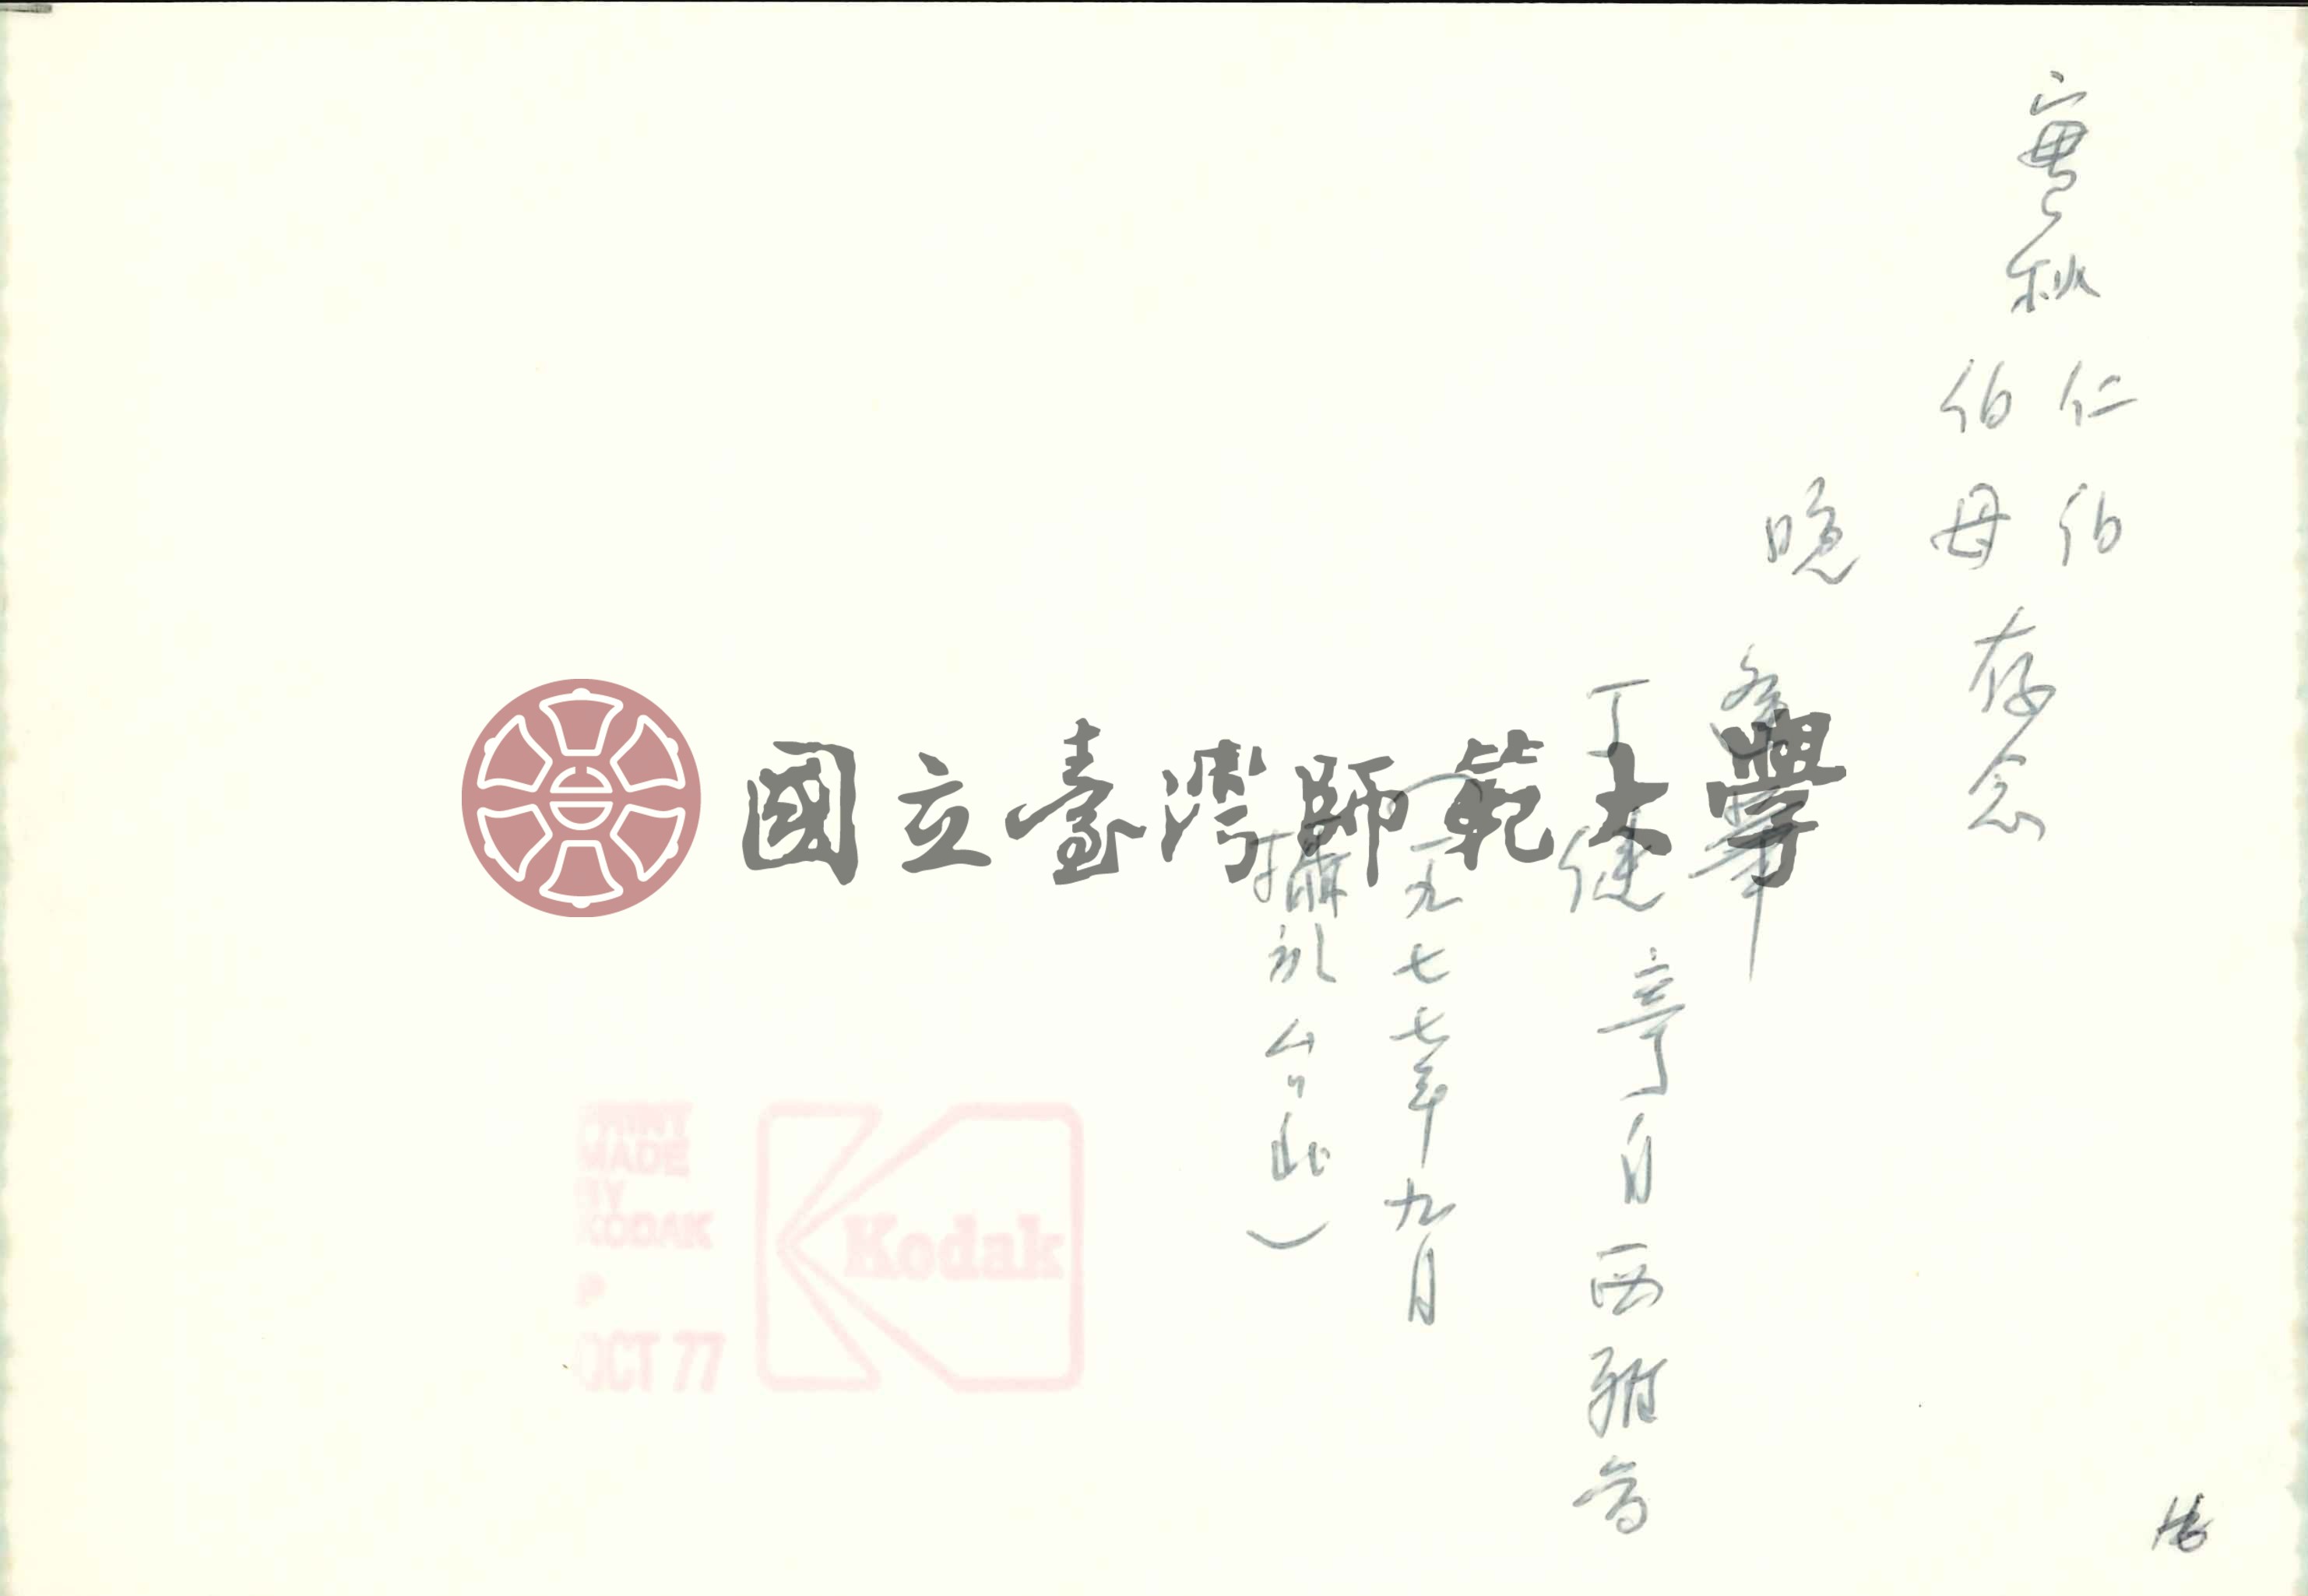 實秋
仁伯
伯母
存念
晚
丁健
自西雅
(一九七七年九月
攝於台北)
國立臺灣師範大學
PRINT
MADE
BY
KODAK
P
OCT 77
Kodak